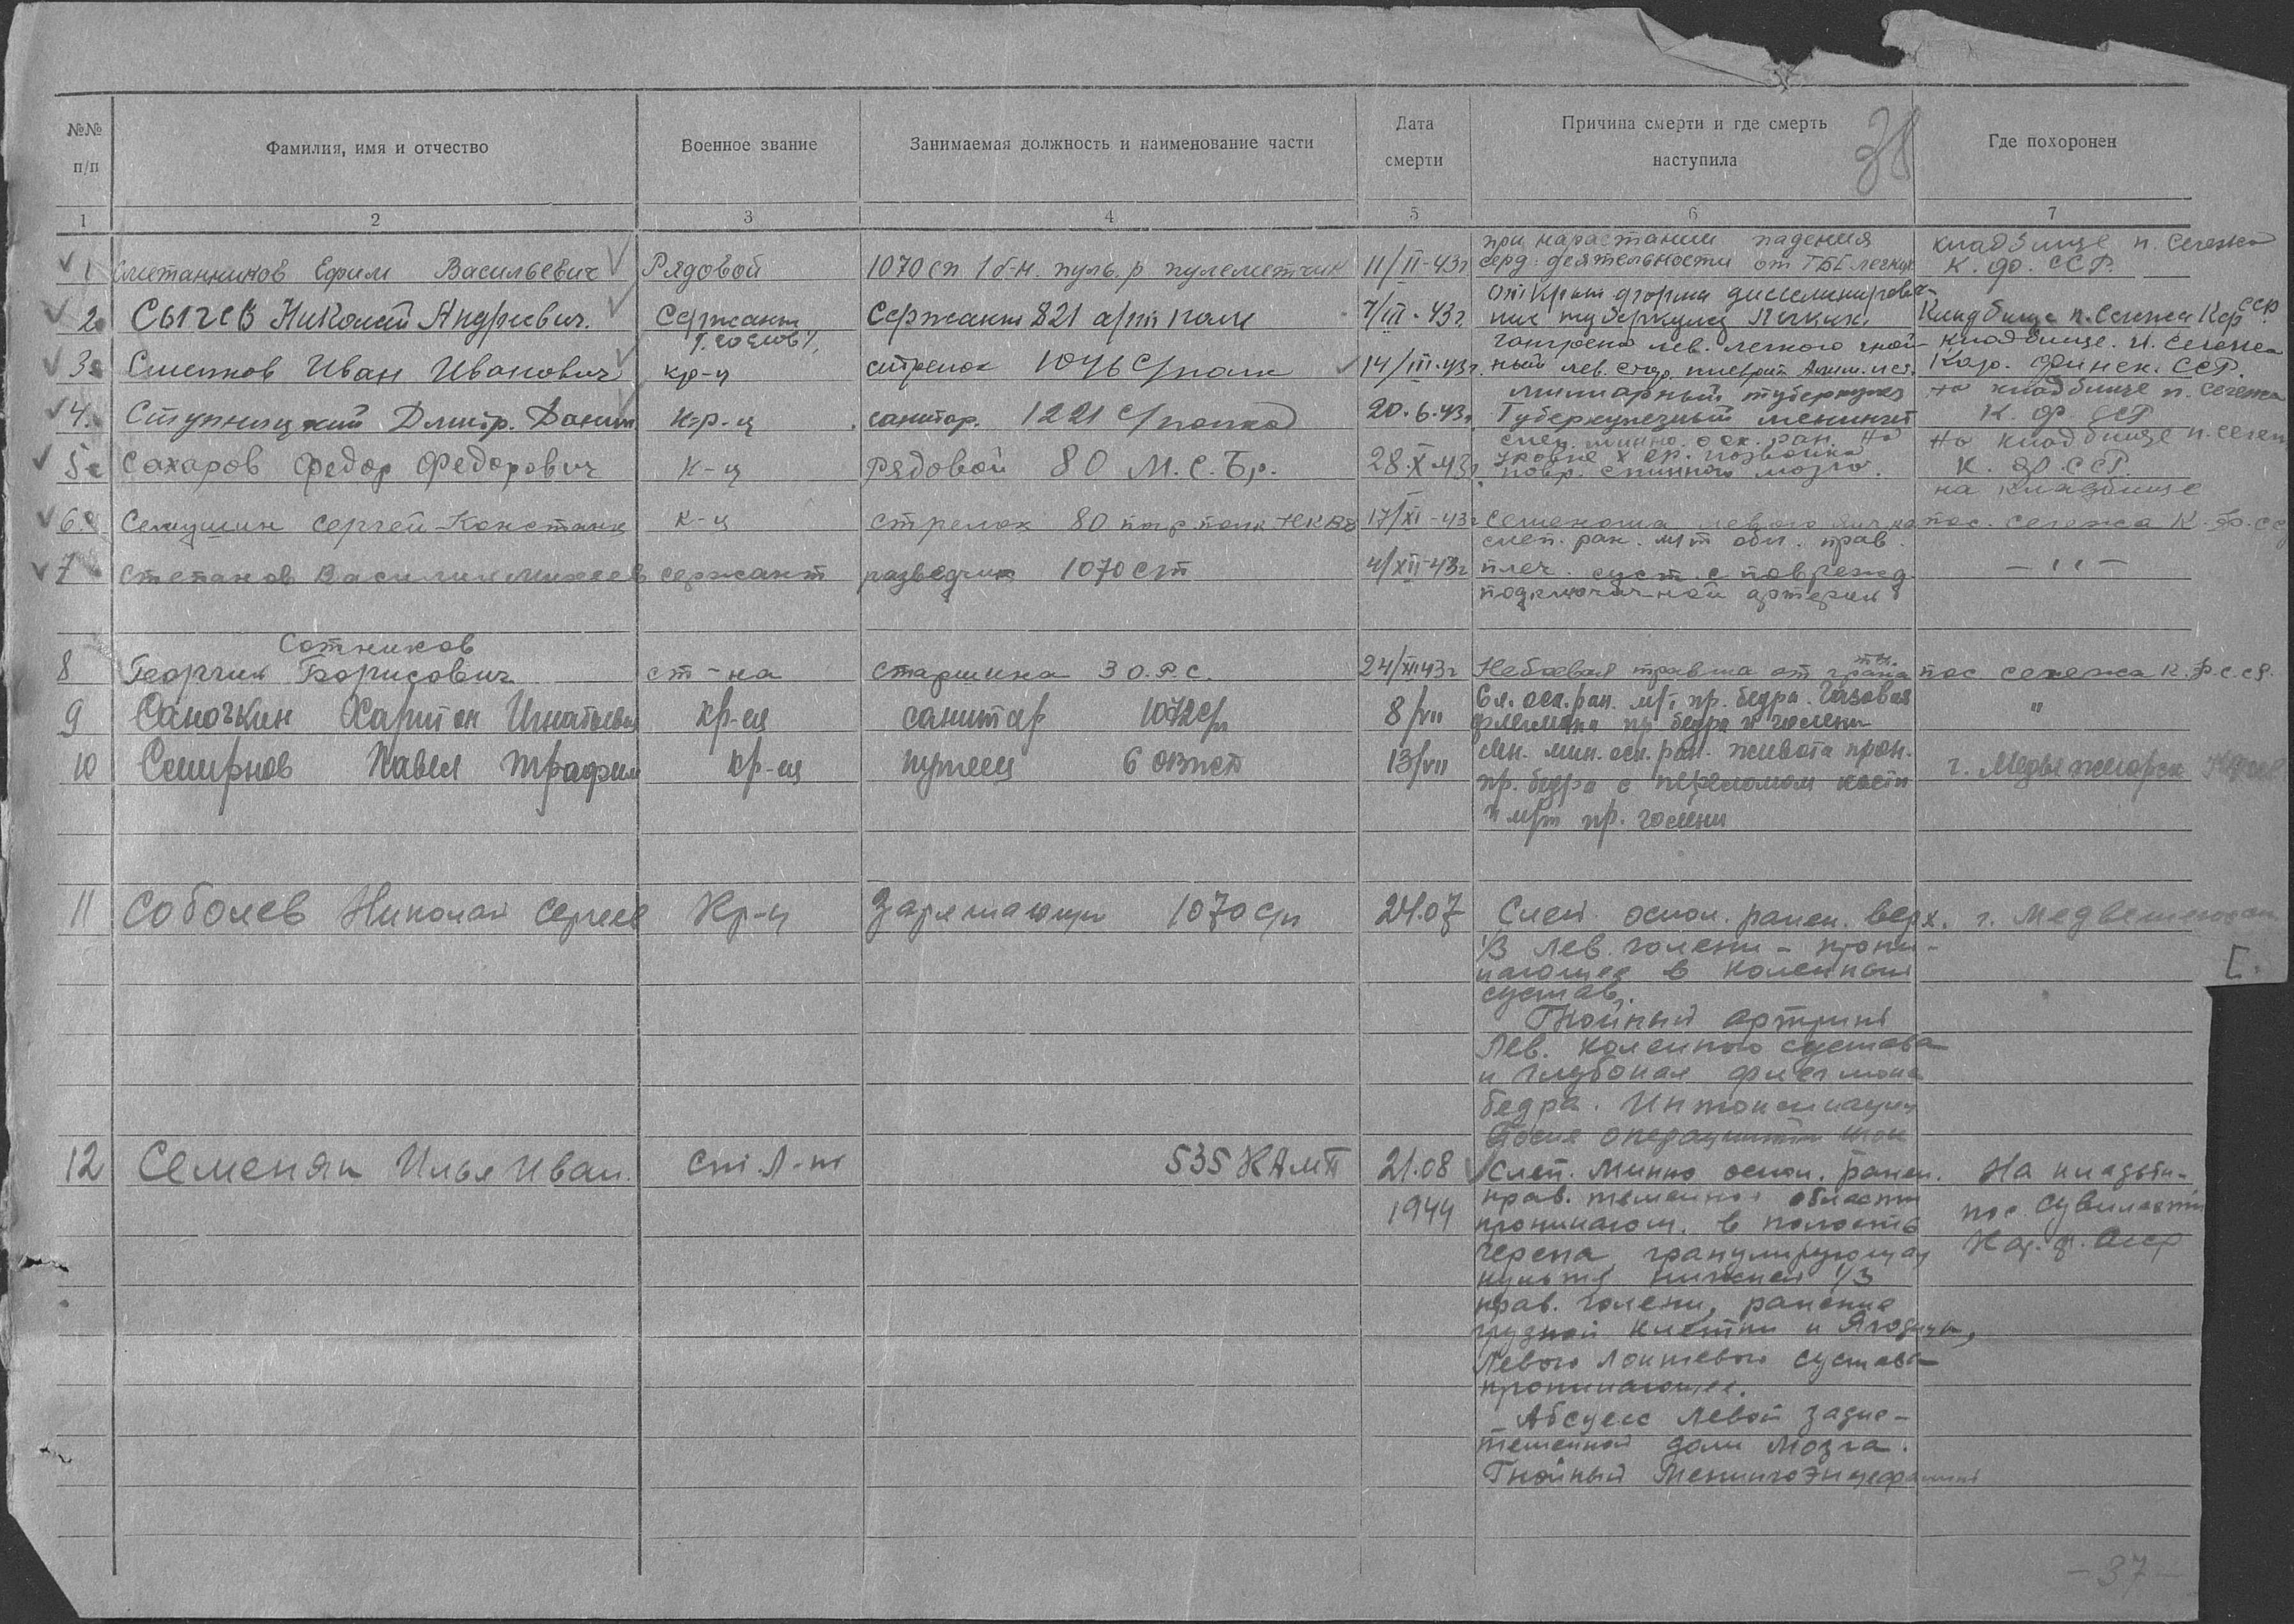 38
№№ п/п
Фамилия, имя и отчество
Военное звание
Занимаемая должность и наименование части
Дата смерти
Причина смерти и где смерть наступила
Где похоронен
1 2 3 4 5 6 7
при нарастании падения кладбище п. Сегежа
1 Сметанников Ефим Васильевич Рядовой 1070 сп 1 б-н. пуль. р пулеметчик 11/II-43г серд. деятельности от ТБЦ легких К. ф. ССР.
открыт форма диссеминирован-
2 Сычев Николай Андреевич. Сержант Сержант 821 арт полк 7/III-43г. туберкулез легких. Кладбище п. Сегежа Кф ССР
гангрена лев. легкого гной- кладбище. п. Сегежа
3 Сметков Иван Иванович кр-ц стрелок 1046 с/полк 14/III-43г. ный лев. стор. плеврит Кар. Финск. ССР.
милиарный туберкулез на кладбище п. Сегежа
4. Ступницкий Дмитр. Данил кр-ц санитар. 1221 с/полка 20.6.43г. Туберкулезный менингит К. Ф. ССР
слеп. минно. оск. ран. на На кладбище п. Сегеж
5 Сахаров Федор Федорович к-ц рядовой 80 М.С.Бр. 28.X.43г уровне X гр. позвонка К. Ф. ССР.
повр. спинного мозга.
на кладбище
6. Семушин Сергей Констант к-ц стрелок 80 погр полк НКВД 17/XI-43г Семенома левого яичка пос. Сегежа К. Ф. ССР
слеп. ран. м/т обл. прав.
7 Степанов Василий Михеев сержант разведчик 1070 сп 4/XII-43г плеч. суст. с поврежд. — ,, —
подключичной артерии
Сотников
8 Георгий Борисович ст-на старшина 3 О.Р.С. 24/XII43г Небоевая травма от гранаты. пос Сегежа К. Ф. С.С.Р.
9 Саночкин Харитон Игнатьевич кр-ец санитар 1072 сп 8/VII Сл. оск. ран. м/т пр. бедра. Газовая "
флегмона пр. бедра и голени
10 Смирнов Павел Трафим кр-ец 6 13/VII мин. оск. ран. живота прон. г. Медвежегорск
пр. бедра с переломом кости
и м/т пр. голени
11 Соболев Николай Сергеев Кр-ц Заряжающий 1070 сп 24.07 Слеп. оскол. ранен. верх. г. Медвежегорск
1/3 лев. голени - прони-
кающее в коленный
сустав.
Гнойный артрит
Лев. коленного сустава
и глубокая флегмона
бедра. Интоксикация
После операции
12 Семеняк Илья Иван. Ст. Л-т 535 КАМП 21.08 Слеп. Минно оскол. ранен. На кладби-
1944 прав. теменной области пос Сувилахти
проникающ. в полость Кар. ф. ССР
черепа гранулирующая
культя нижней 1/3
прав. голени, ранение
грудной клетки и Ягодиц,
Левого локтевого сустава
проникающее.
- Абсцесс Левой задне-
теменной доли Мозга.
Гнойный Менингоэнцефалит
- 37 -